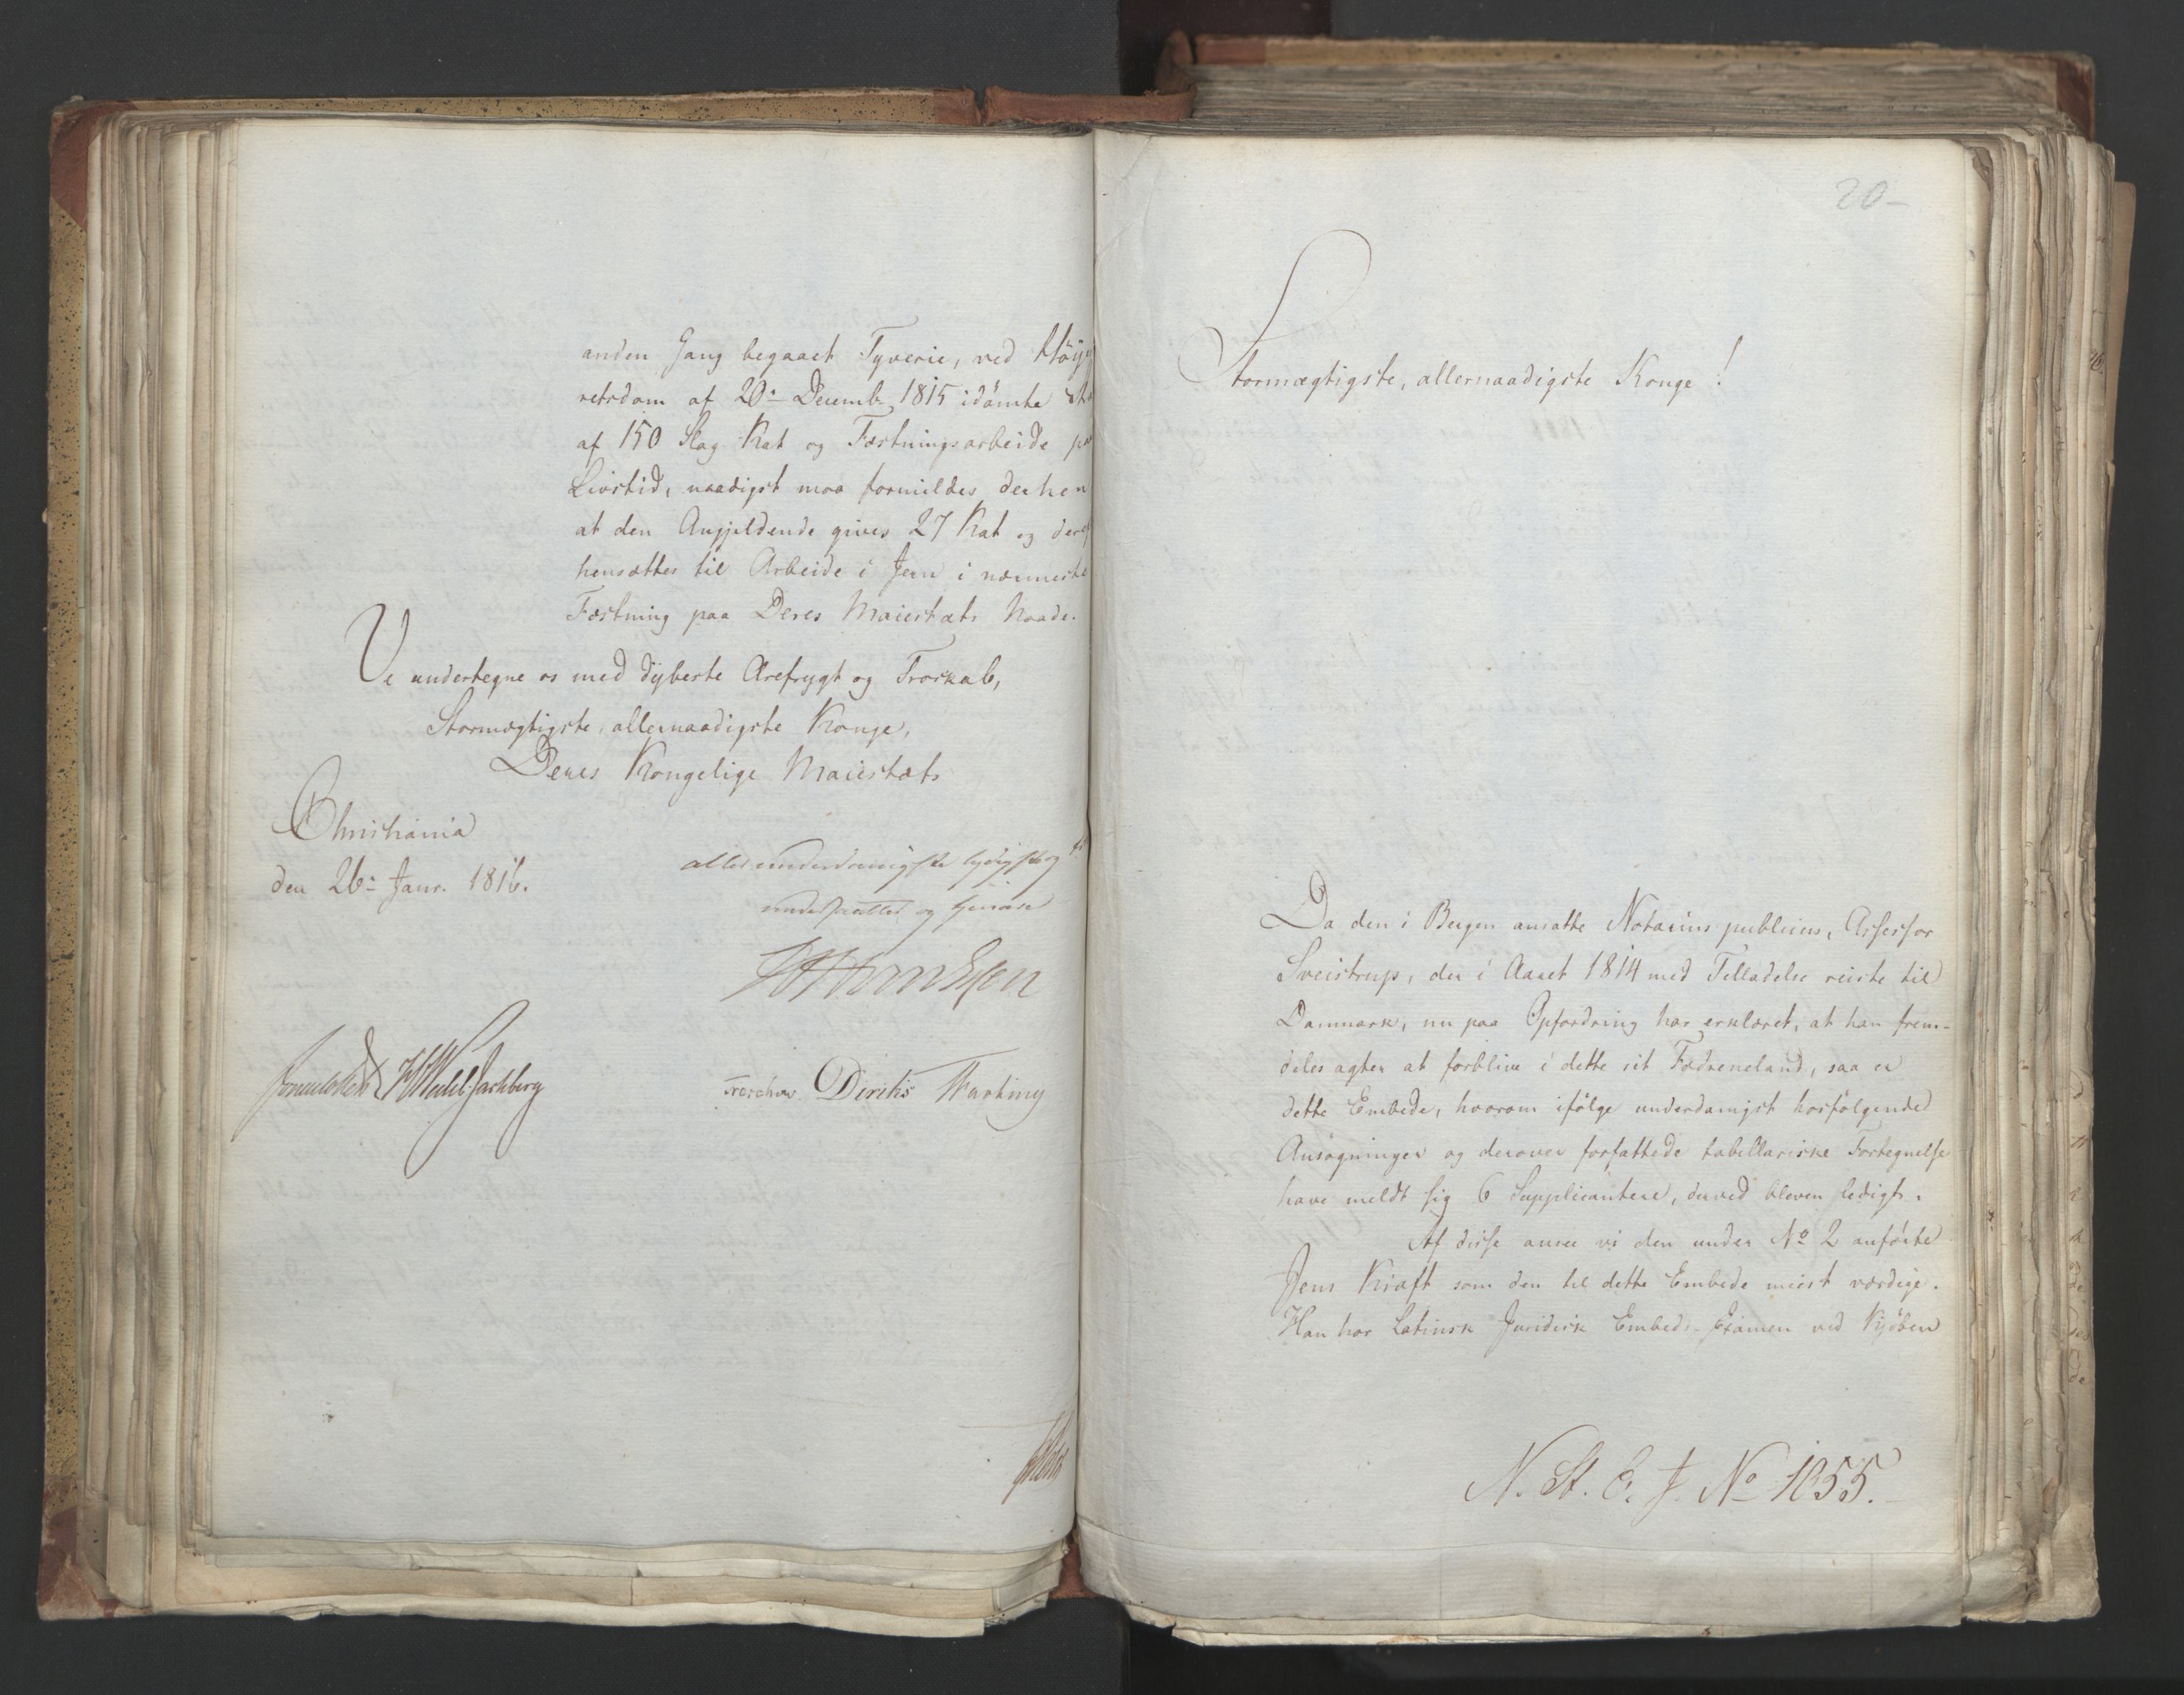 anden Gang begaaet Tyverie, ved Høye
retsdom af 20de Decemb. 1815 idømte
af 150 Slag Kat og Fæstningsarbeide
Livstid, naadigst maa formildes derhen
at den Angjeldende gives 27 Kat og
hensættes til Arbeide i Jern i nærmeste
Fæstning paa Deres Maiestæts Naade.
Vi undertegne os med dybeste Ærefrygt og Troskab,
Stormægtigste, allernaadigste Konge,
Deres Kongelige Maiestæts
Christiania
den 26de Janr. 1816.
allerunderdanigste lydigste og
undersaatter og tienere
Sommerhielm HWedel Jarlsberg Treschow. Diriks Hartmeg
20-
Stormægtigste, allernaadigste Konge!
Da den i Bergen ansatte Notarius publicus, Assessor
Sveistrup, der i Aaret 1814 med Tilladelse reiste til
Danmark, nu paa Opfordring har erklæret, at han frem-
deles agter at forblive i dette sit Fædreneland, saa er
dette Embede, hvorom ifølge underdanigst hosfølgende
Ansøgninger og derover forfattede tabellariske Fortegnelse
have meldt sig 6 Supplicantere, derved bleven ledigt.
Af disse ansee vi den under No 2 anførte
Jens Kraft som den til dette Embede meest værdige.
Han har Latinsk Juridisk Embeds-Examen ved Kjøben
N. St. E. J. No 1055.